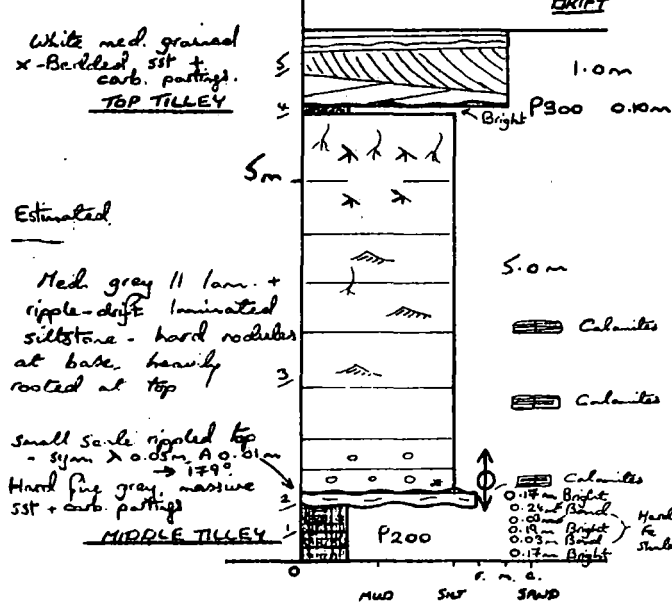 DRIFT
White med. grained
x-Bedded sst +
carb. partings.
TOP TILLEY
5
1.0m
4
Bright P300 0.10m
5m
Estimated
5.0m
Med grey // lam. +
ripple-drift laminated
siltstone - hard nodules
at base, heavily
rooted at top
Calamites
3
Calamites
small scale rippled top
- sym λ 0.05m A 0.01m
→ 179°
Hard fine grey, massive
sst + carb. partings
2
Calamites
0.17m Bright
0.24m Band
0.19m Bright
0.03m Band
0.17m Bright
Hard
Fe
MIDDLE TILLEY
1
P200
0
f. m. c.
MUD SILT SAND